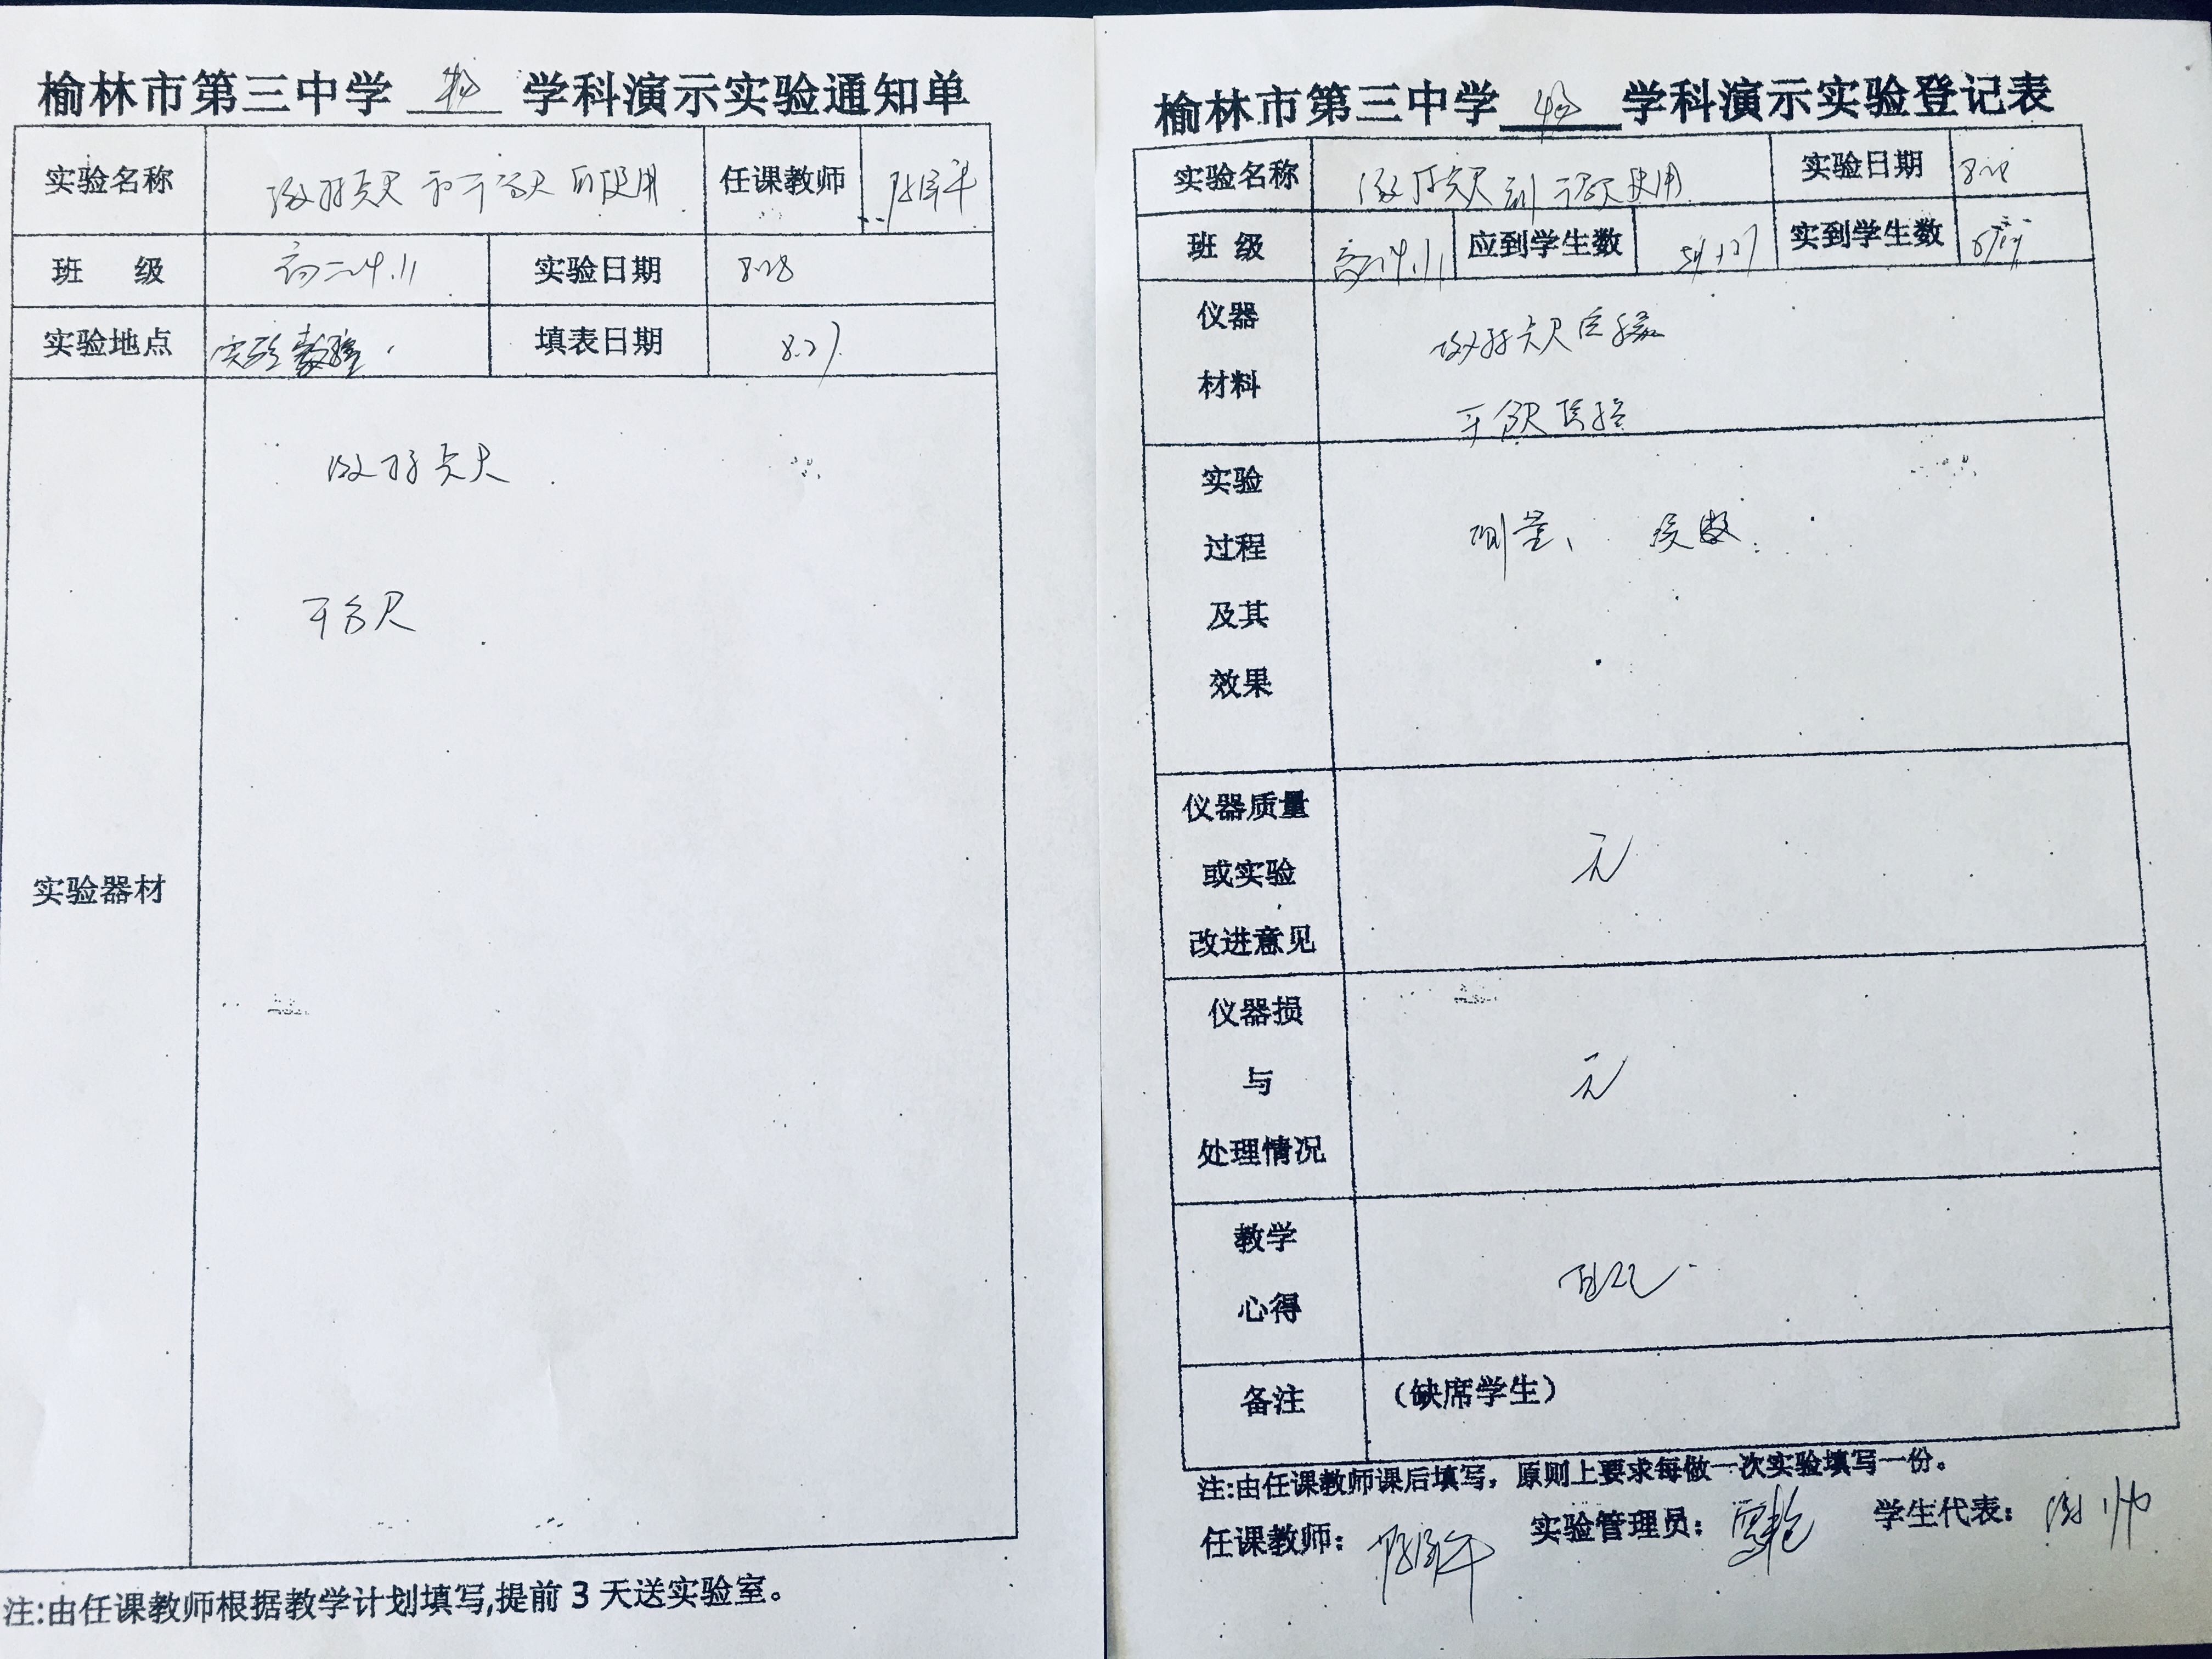 榆林市第三中学 物 学科演示实验通知单
实验名称 游标卡尺和千分尺的使用 任课教师
班 级 高二4.11 实验日期 8.28
实验地点 实验 填表日期 8.27
实验器材
游标卡尺
千分尺
注:由任课教师根据教学计划填写,提前3天送实验室。
榆林市第三中学 物 学科演示实验登记表
实验名称 游标卡尺和千分尺使用 实验日期 8.28
班 级 高二4.11 应到学生数 实到学生数
仪器
材料
游标卡尺
千分尺
实验
过程
及其
效果
测量、 读数
仪器质量
或实验
改进意见
无
仪器损
与
处理情况
无
教学
心得
备注 （缺席学生）
注:由任课教师课后填写，原则上要求每做一次实验填写一份。
任课教师： 实验管理员： 学生代表：